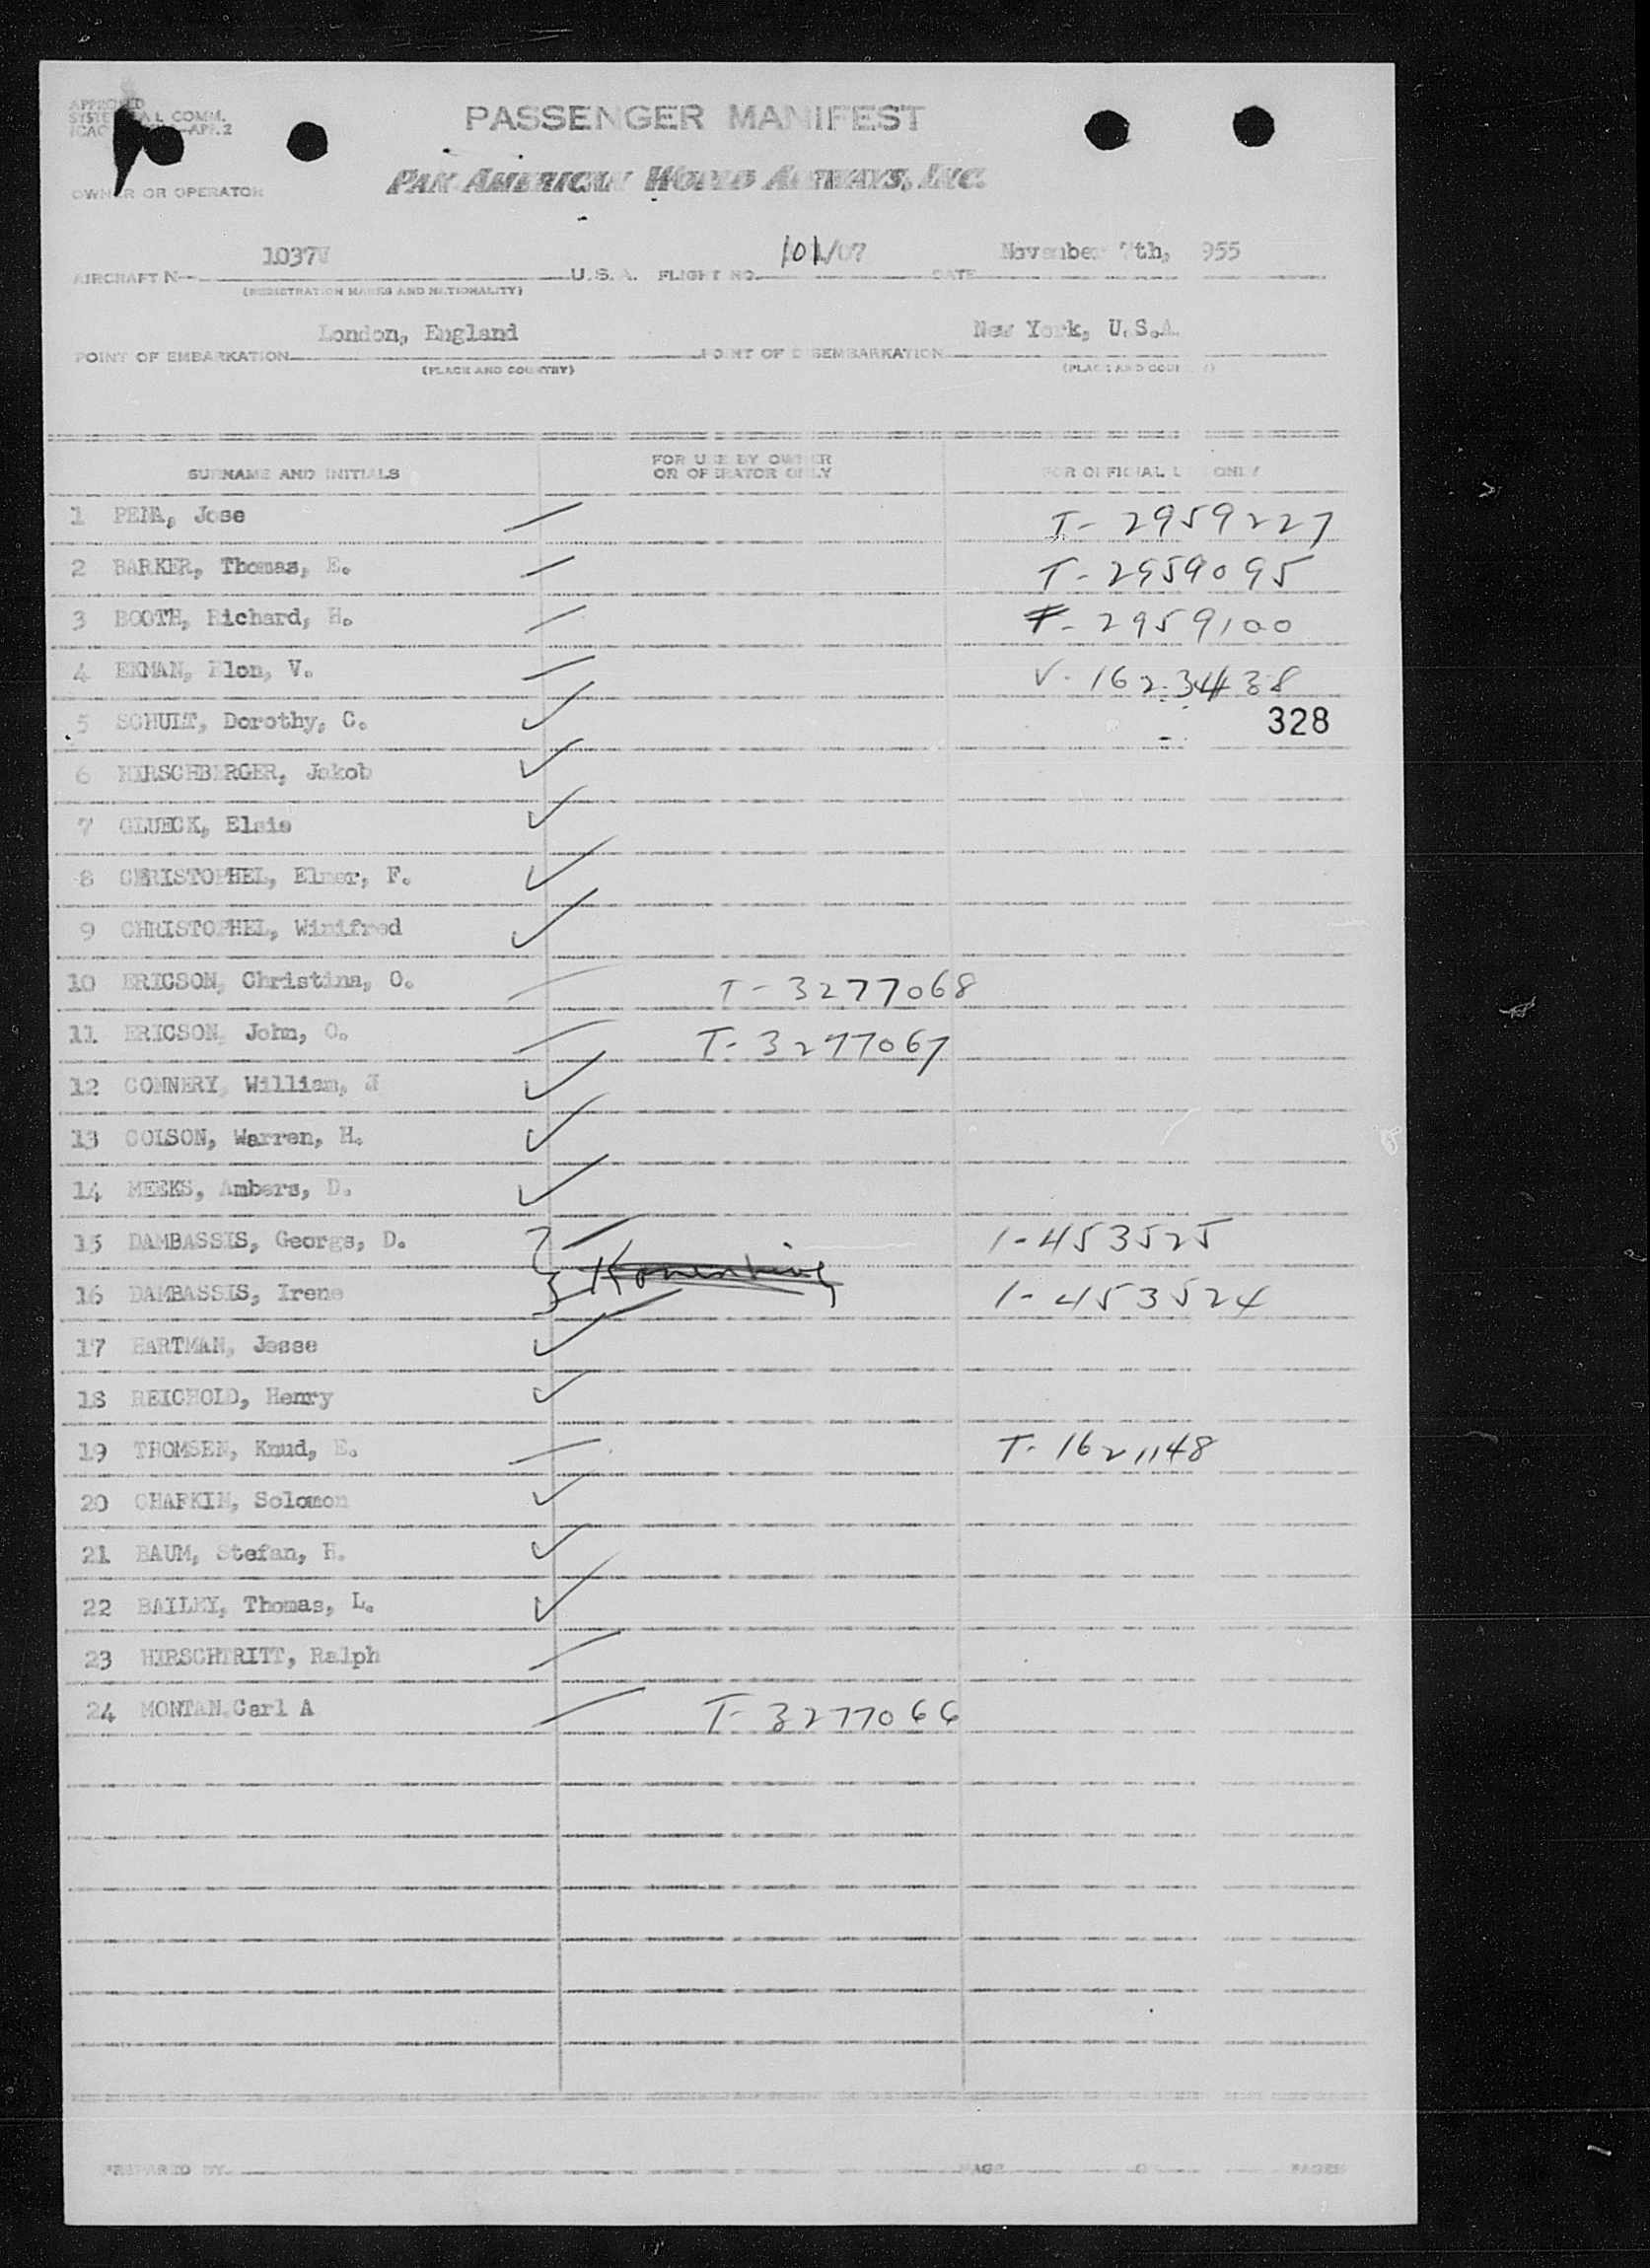 APPROVED
COMM.
APP. 2
PASSENGER MANIFEST
OWNER OR OPERATOR PAN AMERICAN WORLD AIRWAYS, INC.
AIRCRAFT N 1037V U.S.A. FLIGHT NO. 101/07 DATE November 7th, 955
(REGISTRATION MARKS AND NATIONALITY)
POINT OF EMBARKATION London, England POINT OF DISEMBARKATION New York, U.S.A.
(PLACE AND COUNTRY) (PLACE AND COUNTRY)
SURNAME AND INITIALS FOR USE BY OWNER OR OPERATOR ONLY FOR OFFICIAL USE ONLY
1 PENA, Jose T-2959227
2 BARKER, Thomas, E. T-2959095
3 BOOTH, Richard, H. T-2959100
4 EKMAN, Elon, V. V-1623438
5 SCHULT, Dorothy, C. 328
6 HIRSCHBERGER, Jakob
7 GLUECK, Elsie
8 CHRISTOPHEL, Elmer, F.
9 CHRISTOPHEL, Winifred
10 ERICSON, Christina, O. T-3277068
11 ERICSON, John, O. T-3277067
12 CONNERY, William, J
13 COLSON, Warren, H.
14 MEEKS, Ambers, D.
15 DAMBASSIS, George, D. 1-453525
16 DAMBASSIS, Irene 1-453524
17 HARTMAN, Jesse
18 REICHOLD, Henry
19 THOMSEN, Knud, E. T-1621148
20 CHAPKIN, Solomon
21 BAUM, Stefan, H.
22 BAILEY, Thomas, L.
23 HIRSCHTRITT, Ralph
24 MONTAN, Carl A T-3277066
PREPARED BY PAGE OF PAGES